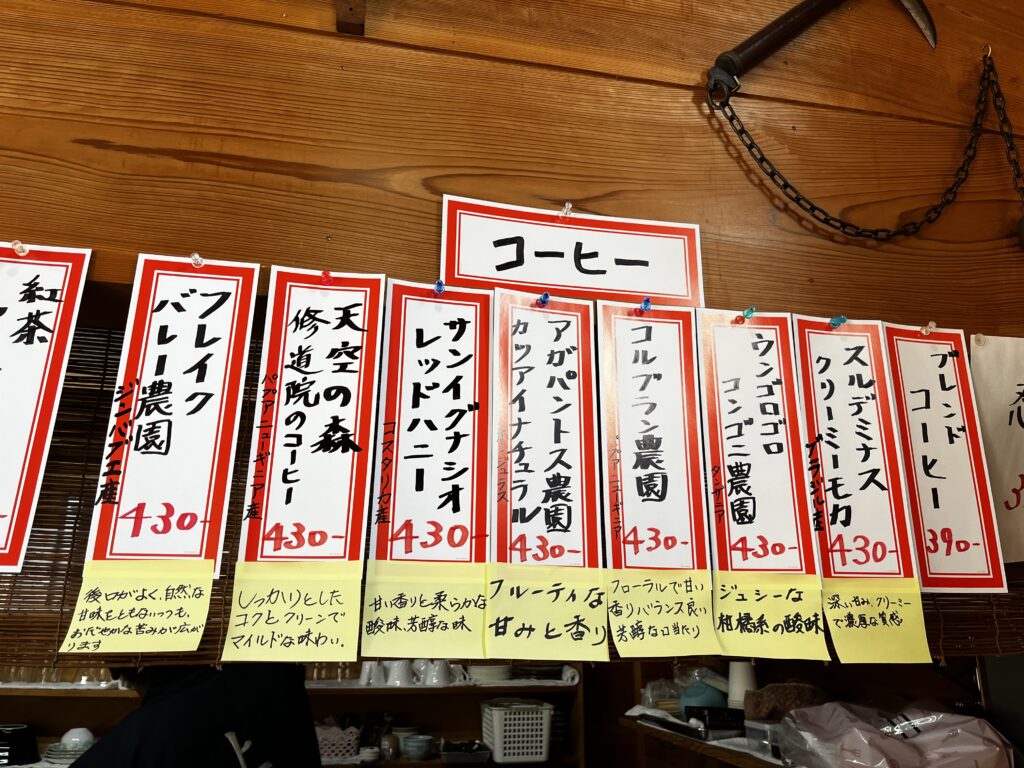 コーヒー
ブレンド
コーヒー
390-
スルデミナス
クリーミーモカ
ブラジル産
430-
深い甘み、クリーミー
で濃厚な質感
ウンゴロゴロ
コンゴニ農園
タンザニア
430-
ジューシーな
柑橘系の酸味
コルブラン農園
パプアニューギニア
430-
フローラルで甘い
香り バランス良い
芳醇な口当たり
アガパントス農園
カツアイナチュラル
430-
フルーティな
甘みと香り
サンイグナシオ
レッドハニー
コスタリカ産
430-
甘い香りと柔らかな
酸味、芳醇な味
天空の森
修道院のコーヒー
パプアニューギニア産
430-
しっかりとした
コクとクリーンで
マイルドな味わい。
フレイク
バレー農園
ジンバブエ産
430-
後口がよく、自然な
甘味をともないつつも、
おだやかな苦みが広が
ります
紅茶